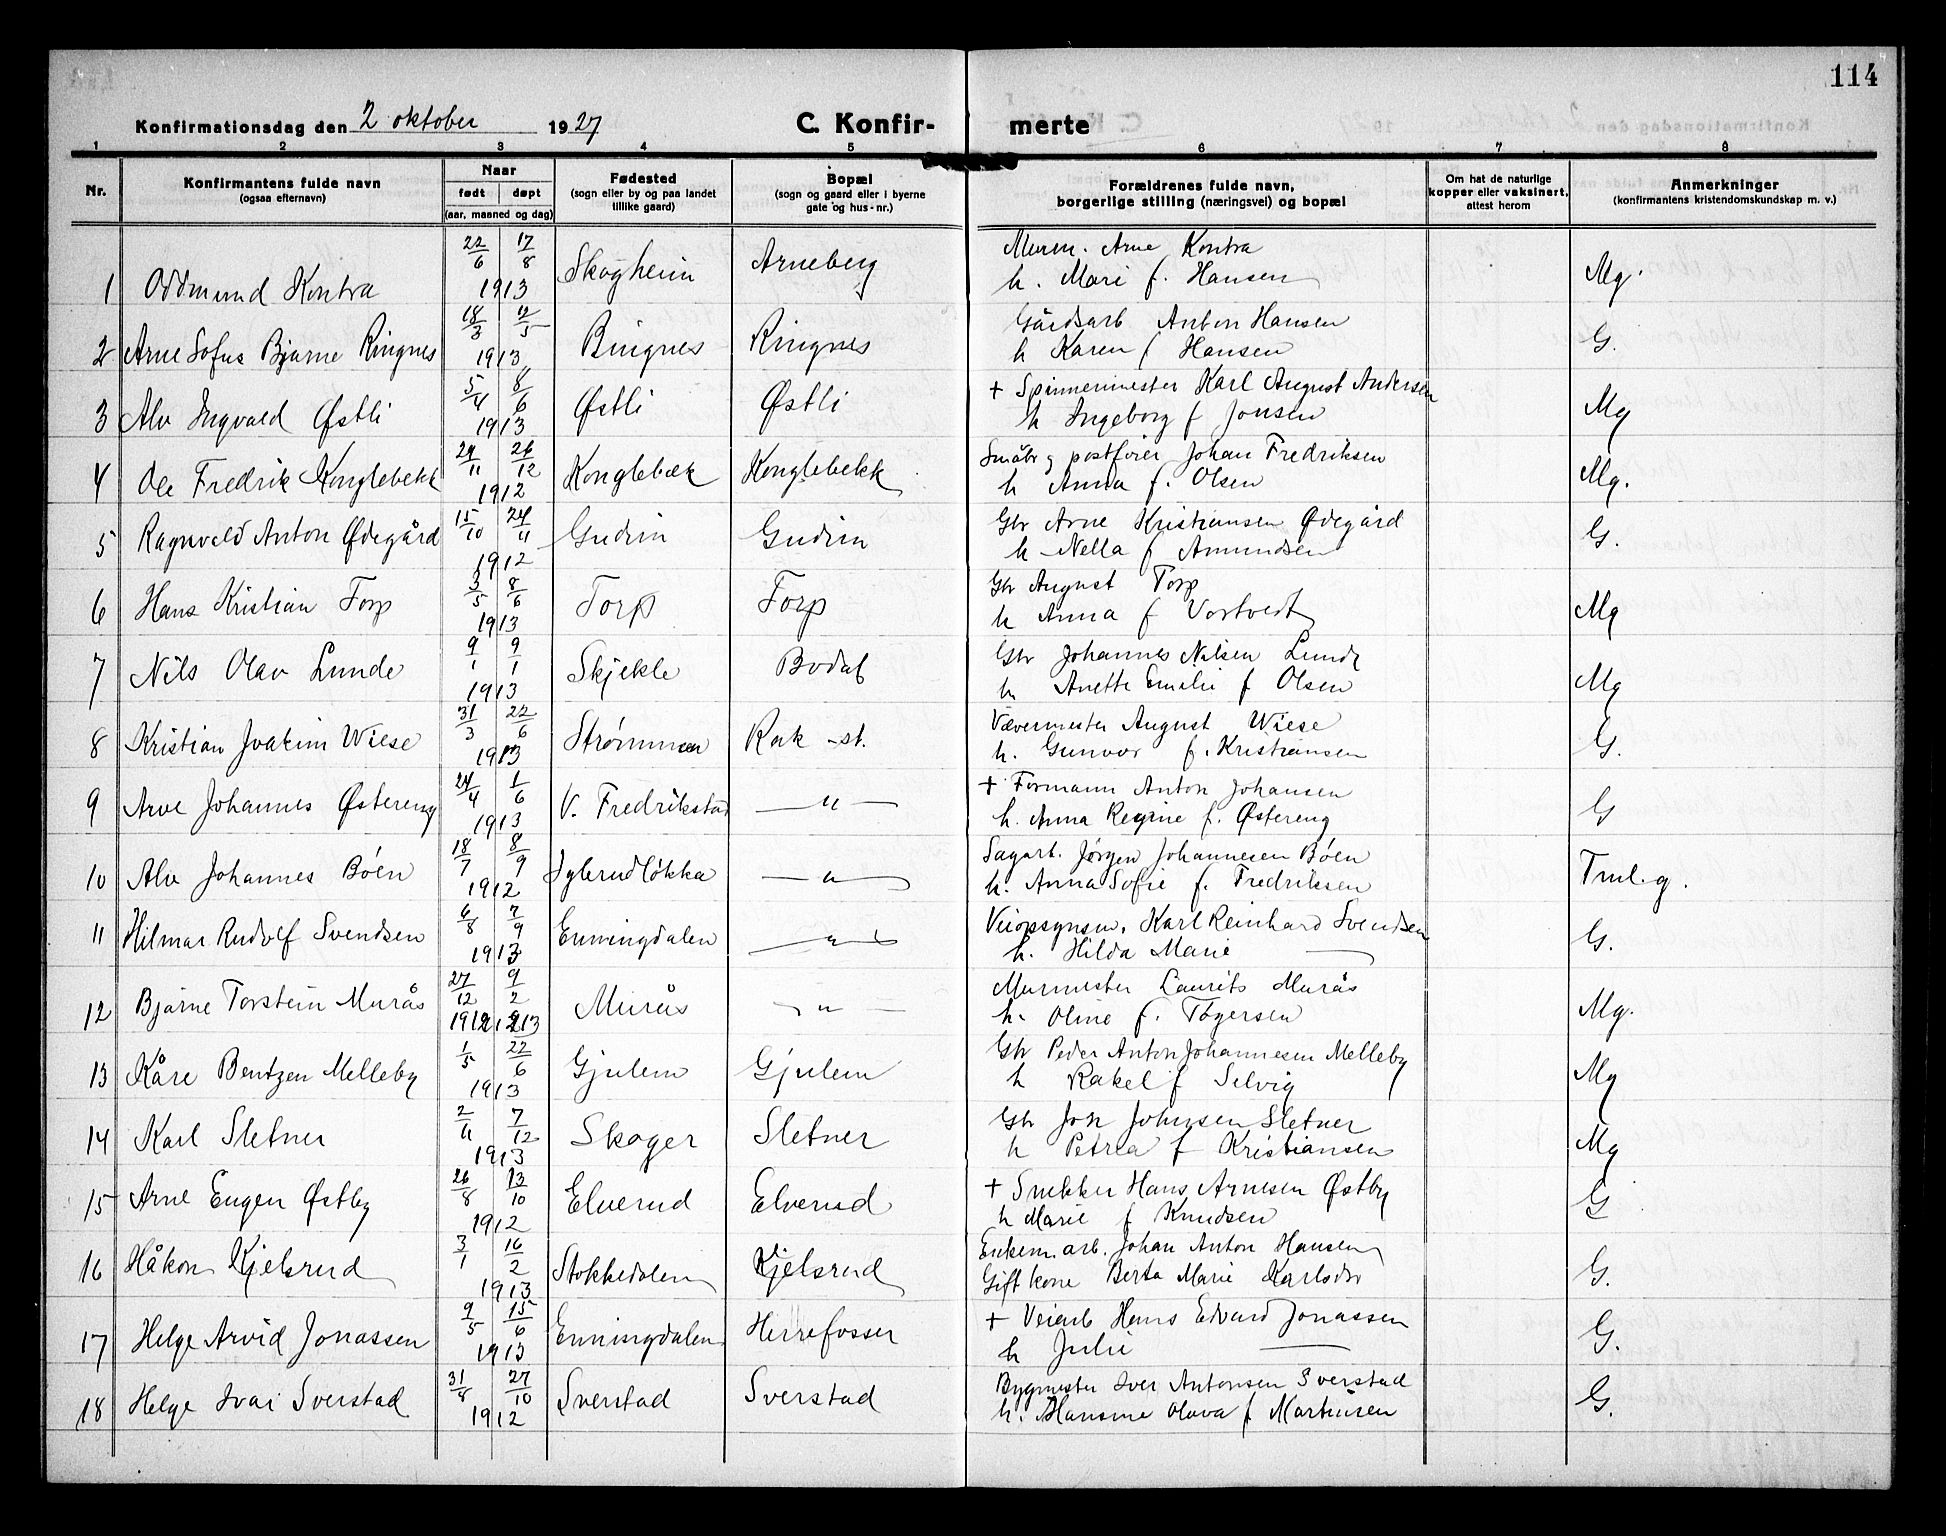 114
Konfirmationsdag den 2 oktober 1927 C. Konfir- merte
1 2 3 4 5 6 7 8
Nr. Konfirmantens fulde navn (ogsaa efternavn) Naar født døpt (aar, maaned og dag) Fødested (sogn eller by og paa landet tillike gaard) Bopæl (sogn og gaard eller i byerne gate og hus-nr.) Forældrenes fulde navn, borgerlige stilling (næringsvei) og bopæl Om hat de naturlige kopper eller vaksinert, attest herom Anmerkninger (konfirmantens kristendomskundskap m. v.)
1 Oddmund Kontra 22/6 17/8 1913 Skogheim Arneberg Murm. Arne Kontra
h. Mari f. Hansen Mg.
2 Arne Sofus Bjarne Ringnes 18/3 12/5 1913 Ringnes Ringnes Gårdsarb Anton Hansen
h Karen f Hansen G.
3 Alv Ingvald Østli 5/4 8/6 1913 Østli Østli + Spinnemester Karl August Andersen
h Ingeborg f Jonsen Mg
4 Ole Fredrik Konglebekk 29/11 26/12 1912 Konglebæk Konglebekk Småbr g postfører Johan Fredriksen
h Anna f. Olsen Mg.
5 Ragnvald Anton Ødegård 15/10 24/11 1912 Gudim Gudim Gbr Arne Kristiansen Ødegård
h Nella f Amundsen G.
6 Hans Kristian Torp 3/5 8/6 1913 Torp Torp Gbr August Torp
h Anna f Vortvedt Mg
7 Nils Olav Lunde 9/1 9/1 1913 Skjekle Bodal Gbr Johannes Nilsen Lunde
h Anette Emilie f Olsen Mg
8 Kristian Joakim Wiese 31/3 22/6 1913 Strømmen Rak-st. Vævermester August Wiese
h. Gunvor f. Kristiansen G.
9 Arve Johannes Østereng 24/4 1/6 1913 V. Fredrikstad — " — + Formann Anton Johansen
h. Anna Regine f. Østereng G
10 Alv Johannes Bøen 18/7 8/9 1912 Iglerudløkka — " — Sagarb. Jørgen Johannesen Bøen
h. Anna Sofie f. Fredriksen Tml. g.
11 Hilmar Rudolf Svendsen 6/8 7/9 1913 Enningdalen — " — Veiopsynsm. Karl Reinhard Svendsen
h. Hilda Marie — G.
12 Bjarne Torstein Murås 27/12 9/2 1912 1913 Murås — " — Murmester Laurits Murås
h. Oline f. Togersen Mg.
13 Kåre Bentzen Melleby 1/5 22/6 1913 Gjulem Gjulem Gbr Peder Anton Johannesen Melleby
h Rakel f Selvig Mg
14 Karl Sletner 2/11 7/12 1913 Skoger Sletner Gbr Jon Johnsen Sletner
h Petrea f Kristiansen Mg
15 Arne Eugen Østby 26/8 13/10 1912 Elverud Elverud + Snekker Hans Arnesen Østby
h Marie f Knudsen G
16 Håkon Kjelsrud 3/1 16/2 1913 Stokkedalen Kjelsrud Enkem. arb. Johan Anton Hansen
Gift kone Berta Marie Karlsdtr G.
17 Helge Arvid Jonassen 9/5 15/6 1913 Enningdalen Herrefosser + Veiarb Hans Edvard Jonassen
h Julie — G.
18 Helge Ivar Sverstad 31/8 27/10 1912 Sverstad Sverstad Bygmester Iver Antonsen Sverstad
h. Hansine Olava f Martinsen G.